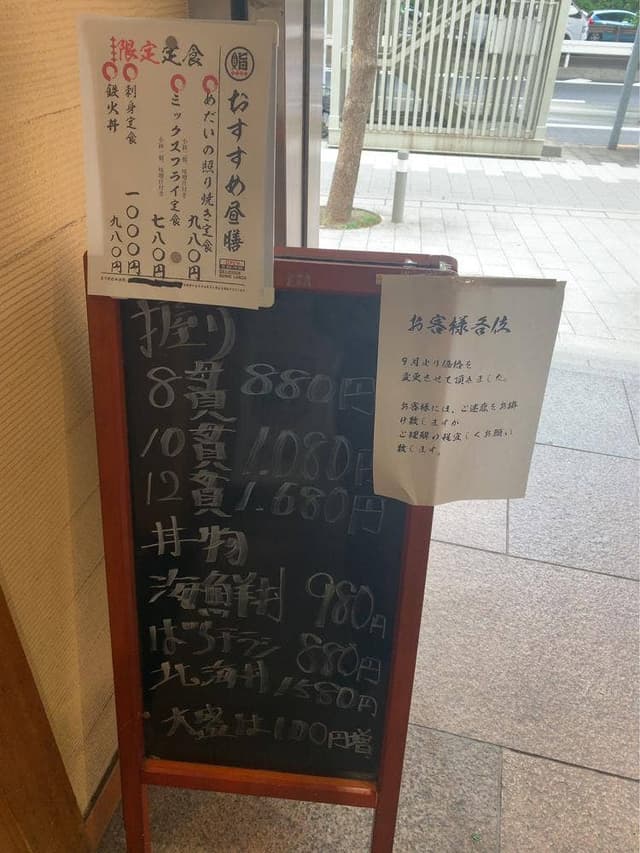 おすすめ昼膳
めだいの照り焼き定食 九八〇円
小鉢一個、味噌汁付き
ミックスフライ定食 七八〇円
小鉢一個、味噌汁付き
限定定食
刺身定食 一〇〇〇円
鉄火丼 九八〇円
お客様各位
9月より価格を
変更させて頂きました。
お客様には、ご迷惑をお掛
け致しますが
ご理解の程宜しくお願い
致します。
握り
8貫 880円
10貫 1.080円
12貫 1.680円
丼物
海鮮丼 980円
ばらチラシ 880円
北海丼 1580円
大盛は100円増